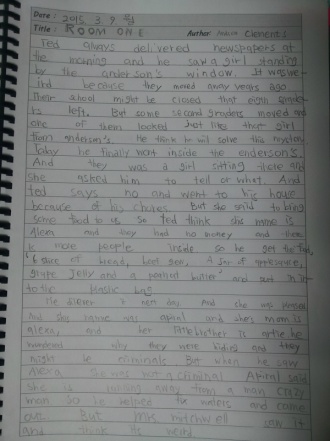 Date : 2015. 3. 9. 월
Title : ROOM ONE Author Andrew Clements
Ted always delivered newspapers at
the morning and he saw a girl standing
by the anderson's window. It was we-
ird because they moved away years ago.
Their shool might be closed that eighth grader
is left. But some second graders moved and
one of them looked just likes that girl
from anderson's. He think he will solve this mystery.
Today he finally went inside the enderson's.
And they was a girl sitting there and
she asked him to tell or what. And
ted says no and went to his house
because of his chores. But she said to bring
some food to us. So ted think she name is
Alexa and they had no money and there
is more people inside so he get the food,
of bread, beef, a Jar of applesauce,
grape Jelly and a peanut butter and put in it
to the plastic bag
He day. And she was
And she name was april and she's mom is
Alexa, and her brother is he
wondered why they were hiding and they
might be criminals But when he saw
Alexa she was not a criminal April said
she is running away from a man crazy
man So he helped and came
out. But Mrs. Mitchell saw it
and think its weird